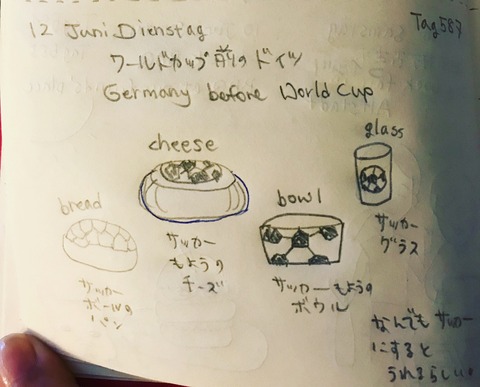 12 Juni Dienstag
Tag587
ワールドカップ前のドイツ
Germany before World Cup
cheese
glass
bread
bowl
サッカー
グラス
サッカー
もようの
チーズ
サッカーもようの
ボウル
サッカー
ボールの
パン
なんでもサッカー
にすると
うれるらしい。